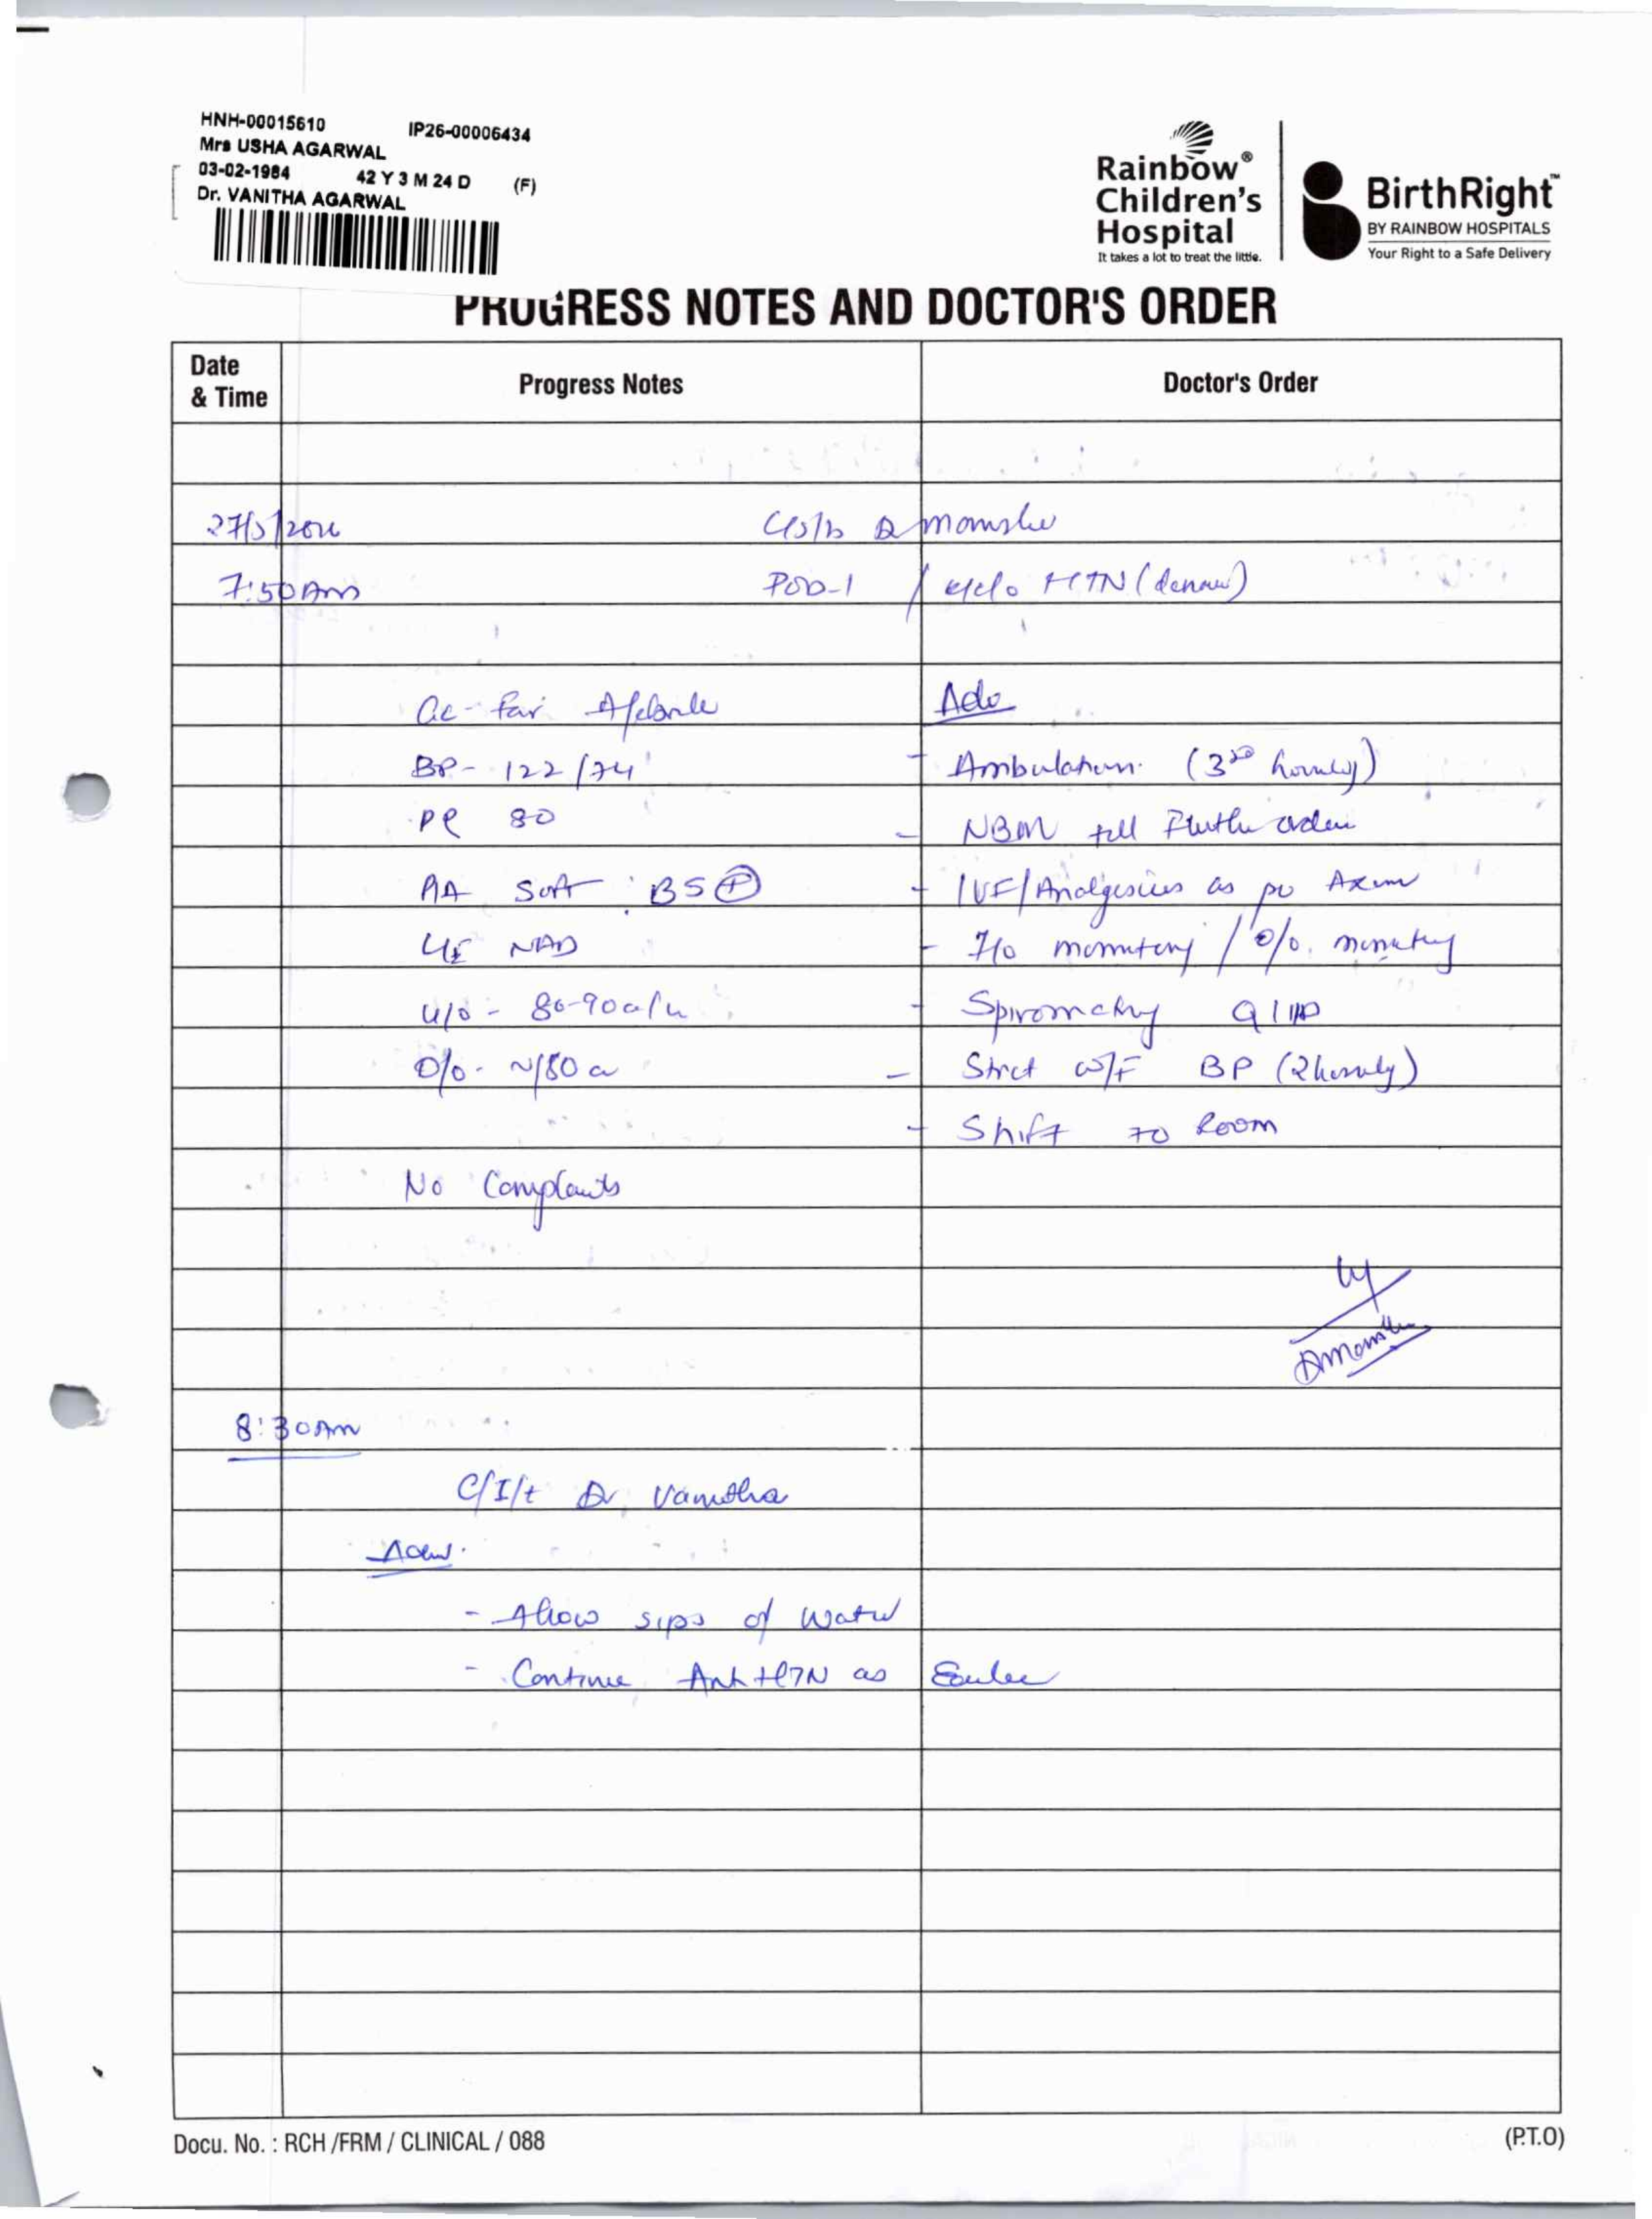 HNH-00015610 IP26-00006434
Mrs USHA AGARWAL
03-02-1984 42 Y 3 M 24 D (F)
Dr. VANITHA AGARWAL
Rainbow®
Children's
Hospital
It takes a lot to treat the little.
BirthRight™
BY RAINBOW HOSPITALS
Your Right to a Safe Delivery
PROGRESS NOTES AND DOCTOR'S ORDER
Date & Time Progress Notes Doctor's Order
27/5/2026 C/S/b Dr
7:50 Am POD-1 / HTN
Fair Afebrile
BP- 122/74 - Ambulation. (3rd hourly)
PR 80 - NBM till order
PA Soft BS (+) - IVF/Analgesics as per
NAD - I/O monitoring / O/o. monitoring
u/o - 80-90 - Spirometry
D/o - - Strict w/F BP (2 hourly)
- Shift to Room
No Complaints
8:30 Am
C/I/t Dr Vanitha
- Allow sips of water
- Continue HTN as
Docu. No. : RCH /FRM / CLINICAL / 088 (P.T.O)